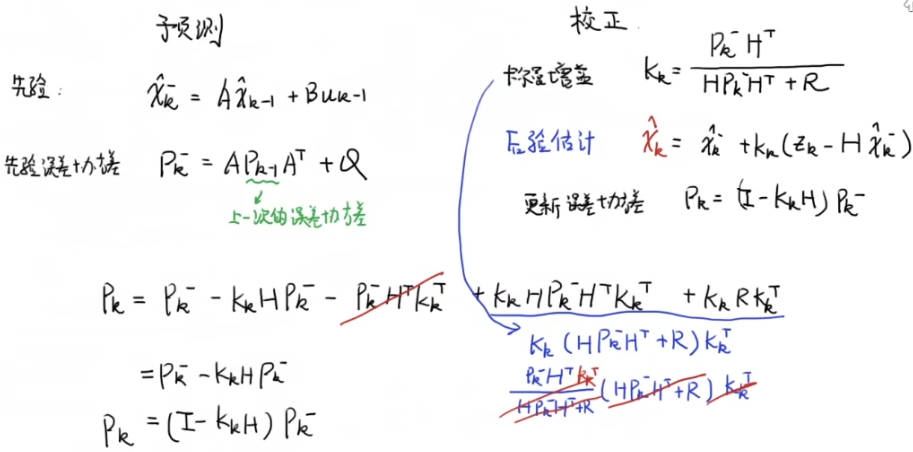 予预测
先验： x̂ₖ⁻ = Ax̂ₖ₋₁ + Buₖ₋₁
先验误差协方差 Pₖ⁻ = APₖ₋₁Aᵀ + Q
上一次的误差协方差
校正
卡尔曼增益 Kₖ = Pₖ⁻Hᵀ / (HPₖ⁻Hᵀ + R)
后验估计 x̂ₖ = x̂ₖ⁻ + Kₖ(zₖ - Hx̂ₖ⁻)
更新误差协方差 Pₖ = (I - KₖH)Pₖ⁻
Pₖ = Pₖ⁻ - KₖHPₖ⁻ - Pₖ⁻HᵀKₖᵀ + KₖHPₖ⁻HᵀKₖᵀ + KₖRKₖᵀ
Kₖ(HPₖ⁻Hᵀ + R)Kₖᵀ
Pₖ⁻HᵀKₖᵀ / (HPₖ⁻Hᵀ + R) (HPₖ⁻Hᵀ + R) Kₖᵀ
= Pₖ⁻ - KₖHPₖ⁻
Pₖ = (I - KₖH)Pₖ⁻